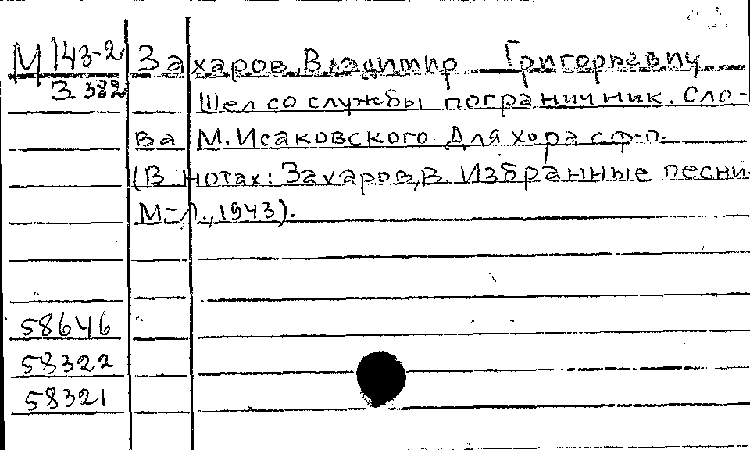 М 143-2 Захаров, Владимир Григорьевич
З 382 Шел со службы пограничник. Сло-
ва М. Исаковского. Для хора с ф-п.
(В нотах: Захаров, В. Избранные песни.
М-Л., 1943).
58646
58322
58321